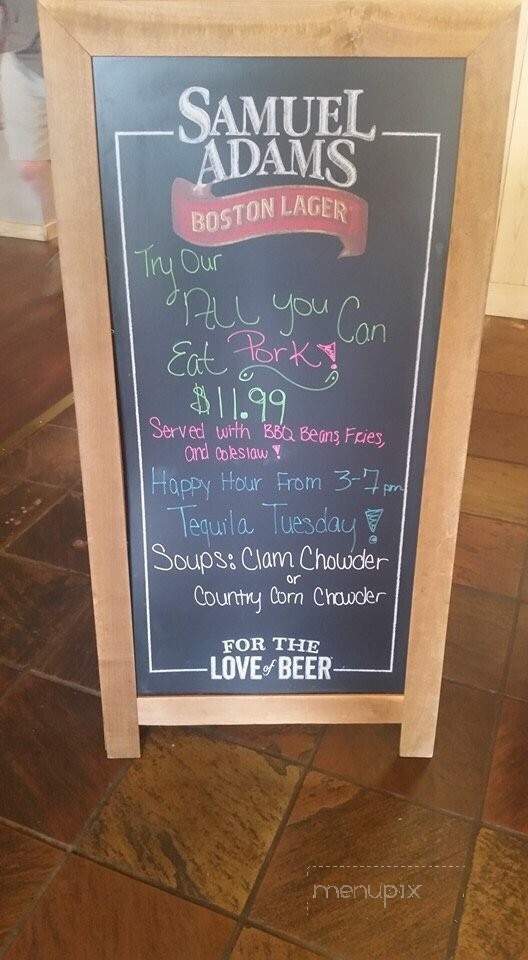 SAMUEL
ADAMS
BOSTON LAGER
Try Our
ALL you Can
Eat Pork!
$11.99
Served with BBQ Beans, Fries,
and coleslaw!
Happy Hour From 3-7 pm
Tequila Tuesday!
Soups: Clam Chowder
or
Country Corn Chowder
FOR THE
LOVE of BEER
menupix